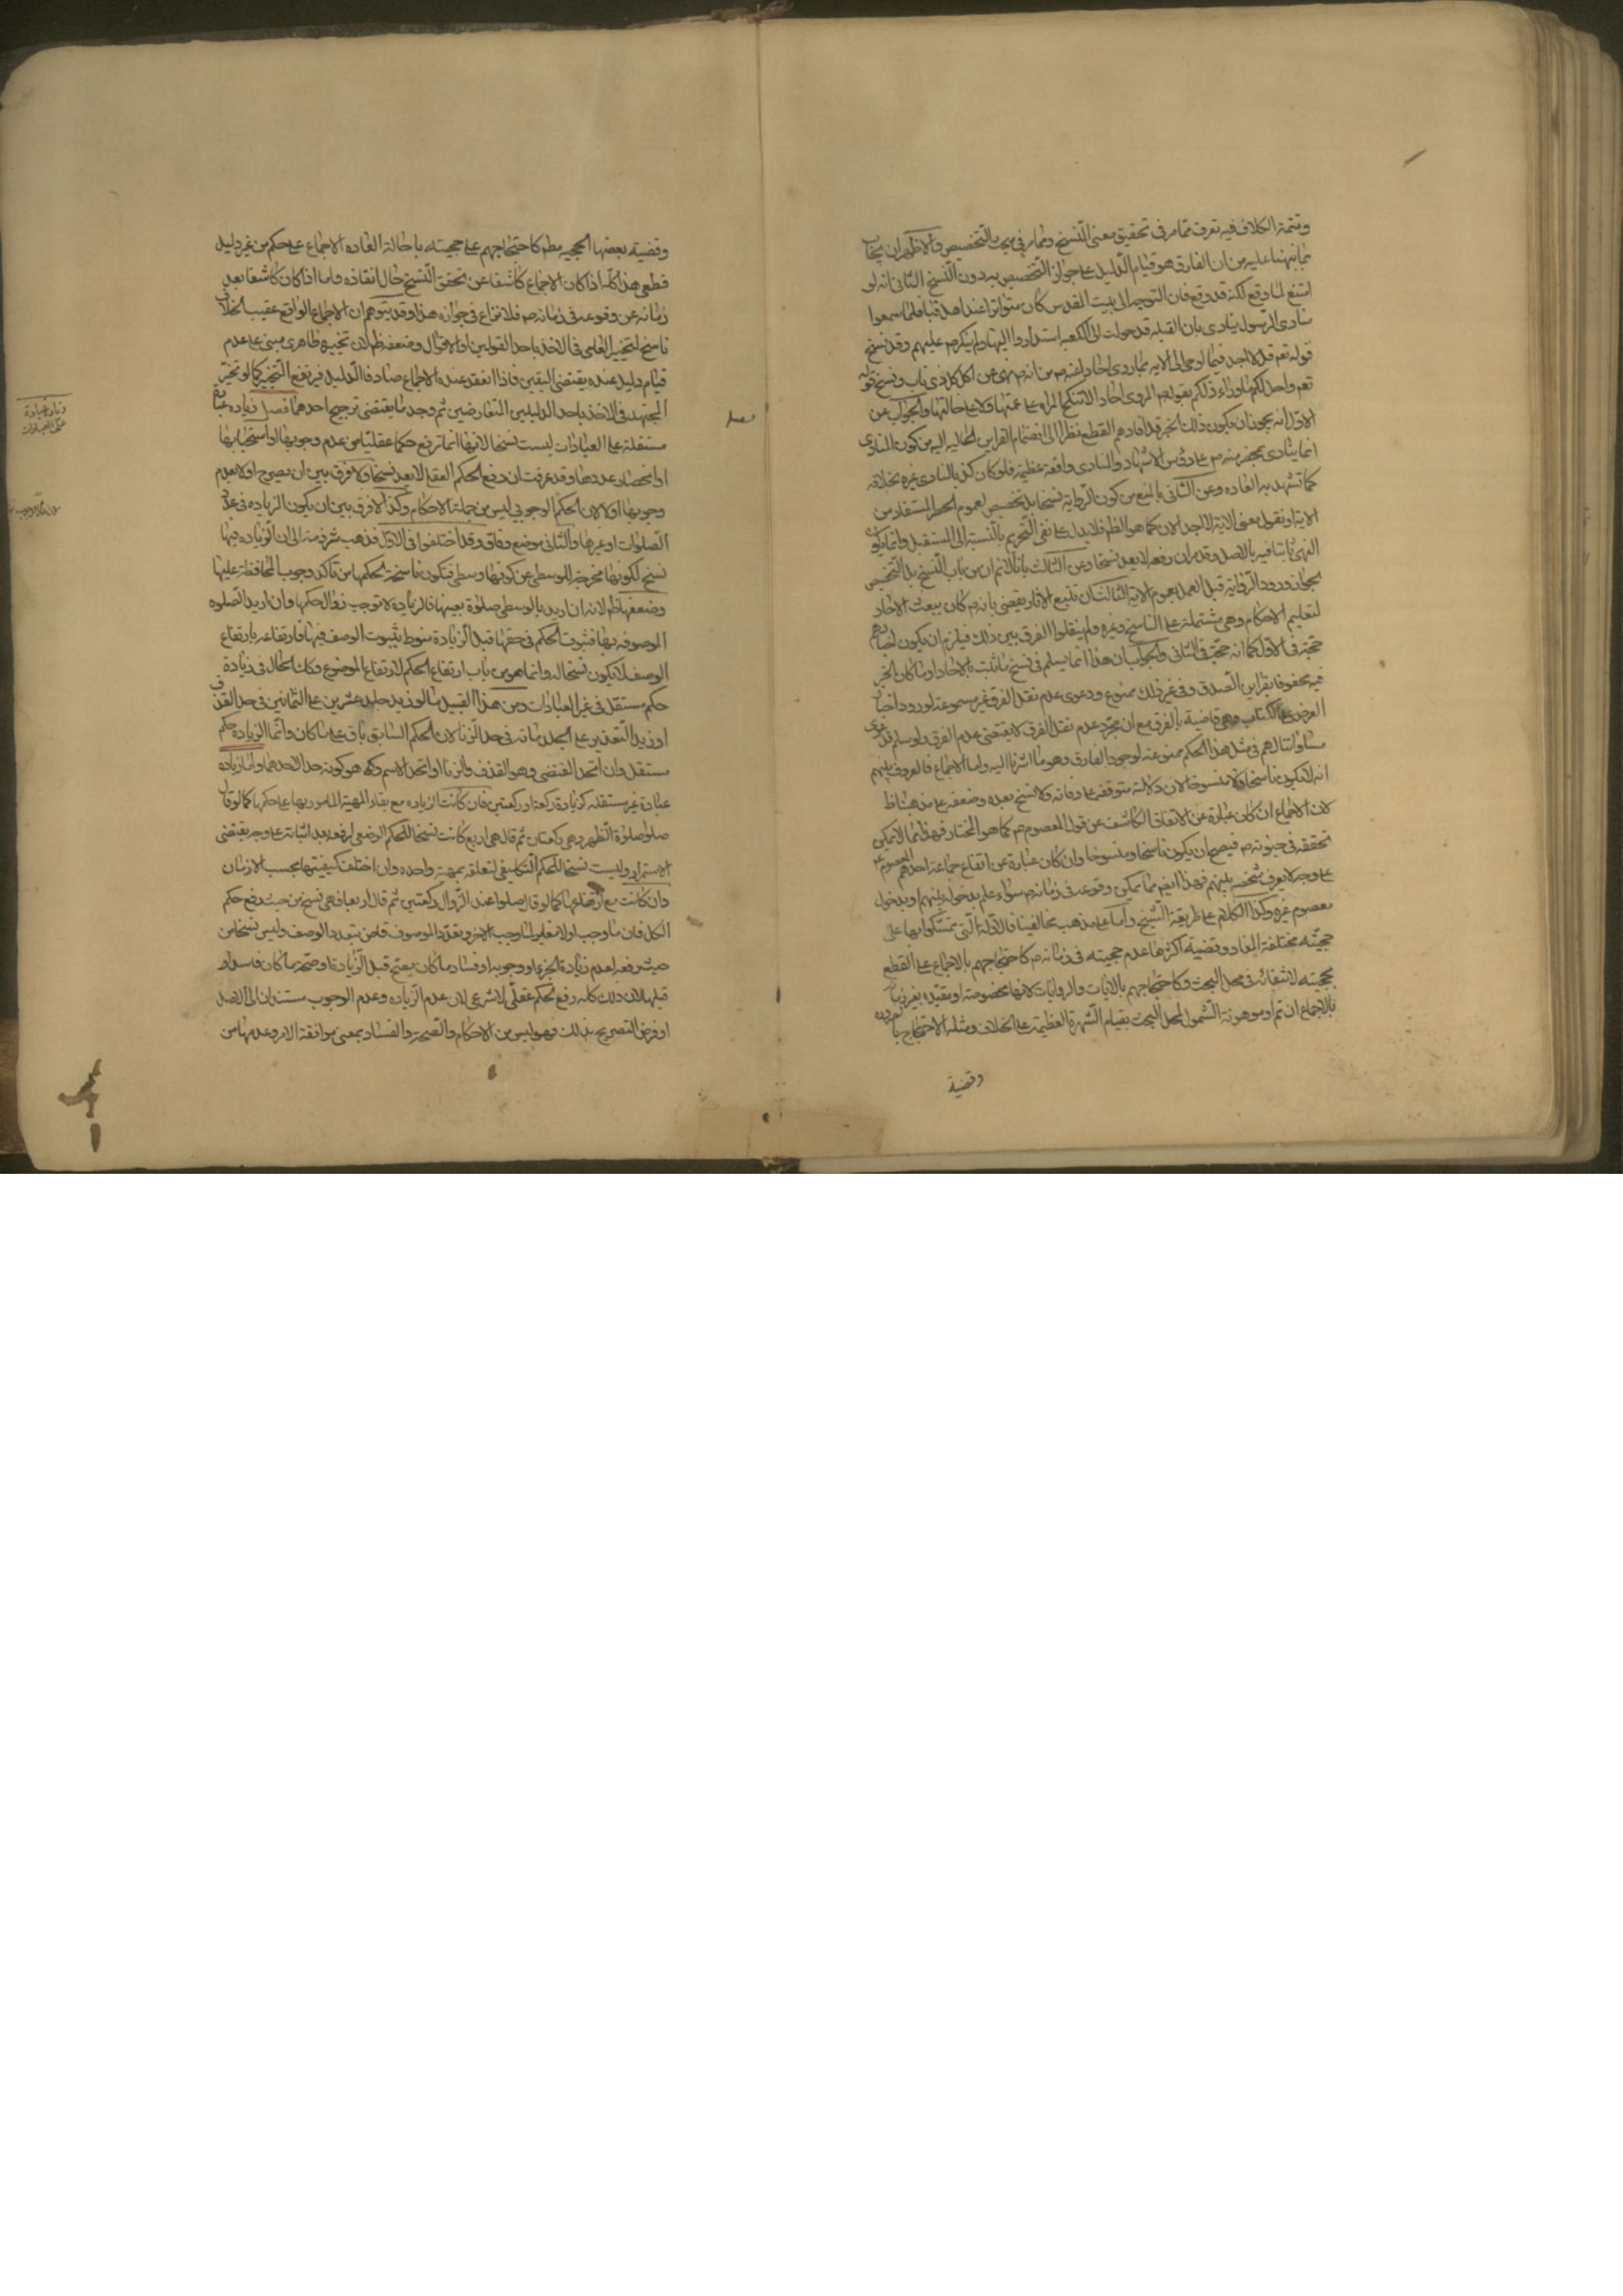 وتتمة الكلام فيه تعرف مما مر في تحقيق معنى النسخ ومما مر في مبحث التخصيص والاظهر ان يجاب
بما نبهنا عليه من ان الفارق هو قيام الدليل على جواز التخصيص به دون النسخ الثاني انه لو
امتنع لما وقع لكنه قد وقع فان التوجه الى بيت المقدس كان متواترا عند اهل قبا فلما سمعوا
منادى الرسول ينادى بان القبلة قد حولت الى الكعبه استداروا اليها ولم ينكرم عليهم وقد نسخ
قوله تعم قل لا اجد فيما اوحى الى الايه بما روى احادا عنه م من انه م نهى عن اكل كل ذى ناب ونسخ قوله
تعم واحل لكم ما وراء ذلكم بقوله م المروى احادا لا تنكح المراه على عمتها ولا على خالتها والجواب عن
الاول انه يجوز ان يكون ذلك الخبر قد افادهم القطع نظرا الى انضمام القراين الحاليه اليه من كون المنادى
انما ينادى بمحضر منه م على رؤس الاشهاد والمنادى واقعة عظيمة فلو كان كذبا لنادى غيره بخلافه
كما تشهد به العاده وعن الثاني بالمنع من كون الرواية نسخا بل تخصيص لعموم الحصر المستفاد من
الاية او نقول معنى الاية لا اجد الان كما هو الظم فلا يدل على نفى التحريم بالنسبة الى المستقبل وانما يكون
النهى ثابتا فيه بالاصل وقد مر ان رفعه لا يعد نسخا وعن الثالث بانا لا نم ان من باب النسخ بل التخصيص
لجواز ورود الرواية قبل العمل بعموم الاية الثالث ان تتبع الاثار يقضى بانه م كان يبعث الاحاد
لتعليم الاحكام وهي مشتملة على الناسخ وغيره ولم ينقلوا الفرق بين ذلك فيلزم ان يكون اخبارهم
حجة في الاول كما انه حجة في الثاني والجواب ان هذا انما يسلم في نسخ ما ثبت بالاحاد او ما كان الخبر
فيه محفوفا بقراين الصدق وفي غير ذلك ممنوع ودعوى عدم نقل الفرق غير مسموعة لورود اخبار
العرض على الكتاب وهي قاضية بالفرق مع ان مجرد عدم نقل الفرق لا يقتضى عدم الفرق ولو سلم فدعوى
مساواتنا لهم في مثل هذا الحكم ممنوعة لوجود الفارق وهو ما اشرنا اليه واما الاجماع فالمعروف بينهم
انه لا يكون ناسخا ولا منسوخا لان دلالته متوقفة على وفاته ولا نسخ بعده وضعفه على مذهبنا ظ
لان الاجماع ان كان عبارة عن الاتفاق الكاشف عن قول المعصوم م كما هو المختار فهذا مما لا يمكن
تحققه في حيوته م فيصح ان يكون ناسخا ومنسوخا وان كان عبارة عن اتفاق جماعة احدهم المعصوم
على وجه لا يعرف شخصه بينهم فهذا ايضم مما يمكن وقوعه في زمانه م سواء علم بدخوله بينهم او بدخول
معصوم غيره وكذا الكلام على طريقة الشيخ واما على مذهب مخالفينا فالادلة التي تمسكوا بها على
حجيته مختلفة المفاد وقضية اكثرها عدم حجيته في زمانه م كاحتجاجهم بالاجماع على القطع
بحجيته لانتفائه في محل البحث وكاحتجاجهم بالايات والروايات لانها مخصوصة او مقيدة بغير زمانه
بالاجماع ان تم او موهونة الشمول لمحل البحث بقيام الشهرة العظيمة على الخلاف ومثله الاحتجاج بالعادة
وقضية
وقضية بعضها الحجيه مطم كاحتجاجهم على حجيته باحالة العاده الاجماع على حكم من غير دليل
قطعي هذا كله اذا كان الاجماع كاشفا عن تحقق النسخ حال انعقاده واما اذا كان كاشفا بعد
زمانه عن وقوعه في زمانه م فلا نزاع في جوازه هذا وقد يتوهم ان الاجماع الواقع عقيب الخلاف
ناسخ لتخيير العامى في الاخذ باحد القولين او الاقوال وضعفه ظم لان تخييره ظاهرى مبنى على عدم
قيام دليل عنده يقتضى اليقين فاذا انعقد عنده الاجماع صادف الدليل فيرتفع التخيير كما لو تخير
المجتهد في الاخذ باحد الدليلين المتعارضين ثم وجد ما يقتضى ترجيح احدهما فصل زيادة عبادة
مستقلة على العبادات ليست نسخا لانها انما ترفع حكما عقليا من عدم وجوبها او استحبابها
او انحصار عددها وقد عرفت ان رفع الحكم العقلي لا يعد نسخا ولا فرق بين ان يصرح اولا بعدم
وجوبها اولا لان الحكم الوجوبي ليس من جملة الاحكام وكذا لا فرق بين ان يكون الزياده في عدد
الصلوات او غيرها والثاني موضع وفاق وقد اختلفوا في الاول فذهب شرذمة الى ان الزياده فيها
نسخ لكونها مخرجة للوسطى عن كونها وسطى فيكون ناسخة لحكمها من تاكد وجوب المحافظة عليها
وضعفها ظم لانه ان اريد بالوسطى صلوة بعينها فالزياده لا توجب زوال حكمها وان اريد الصلوه
الموصوفه بها فثبوت الحكم في حقها قبل الزيادة منوط بثبوت الوصف فيها فارتفاعه بارتفاع
الوصف لا يكون نسخا له وانما هو من باب ارتفاع الحكم لارتفاع الموضوع وكذا الحال في زيادة
حكم مستقل في غير العبادات ومن هذا القبيل ما لو زيد جلد عشرين على الثمانين في حد القذف
او زيد التعذير على الجلد مائة في حد الزنا لان الحكم السابق باق على ما كان وانما الزياده حكم
مستقل وان اتحد المقتضى وهو القذف والزنا او اتحد الاسم وكم هو كونه حدا لاحدهما واما زيادة
عبادة غير مستقله كزيادة ركعة او ركعتين فان كانت الزياده مع بقاء المهية المامور بها على حكمها كما لو قال
صلوا صلوة الظهر وهي ركعتان ثم قال هي اربع كانت نسخا للحكم الوضعى لرفعه بعد اثباته على وجه يقتضى
الاستمرار وليست نسخا للحكم التكليفى لتعلقه بمهية واحده وان اختلف كيفيتها بحسب الازمان
وان كانت مع ارتفاعها كما لو قال صلوا عند الزوال ركعتين ثم قال اربعا فهى نسخ من حيث رفع حكم
الكل فان ما وجب اولا مغاير لما وجب الاخر وتعدد الموصوف قاض بتعدد الوصف وليس نسخا من
حيث رفعه لعدم زيادة الجزء او وجوبه او فساد ما كان يصح قبل الزيادة او صحة ما كان فاسدا و
قبلها لان ذلك كله رفع لحكم عقلى لا شرعى لان عدم الزياده وعدم الوجوب مستندان الى الاصل
او فرض التصريح بذلك فهو ليس من الاحكام والصحة والفساد بمعنى موافقة الامر وعدمها من
زيادة عبادة
على العبادات